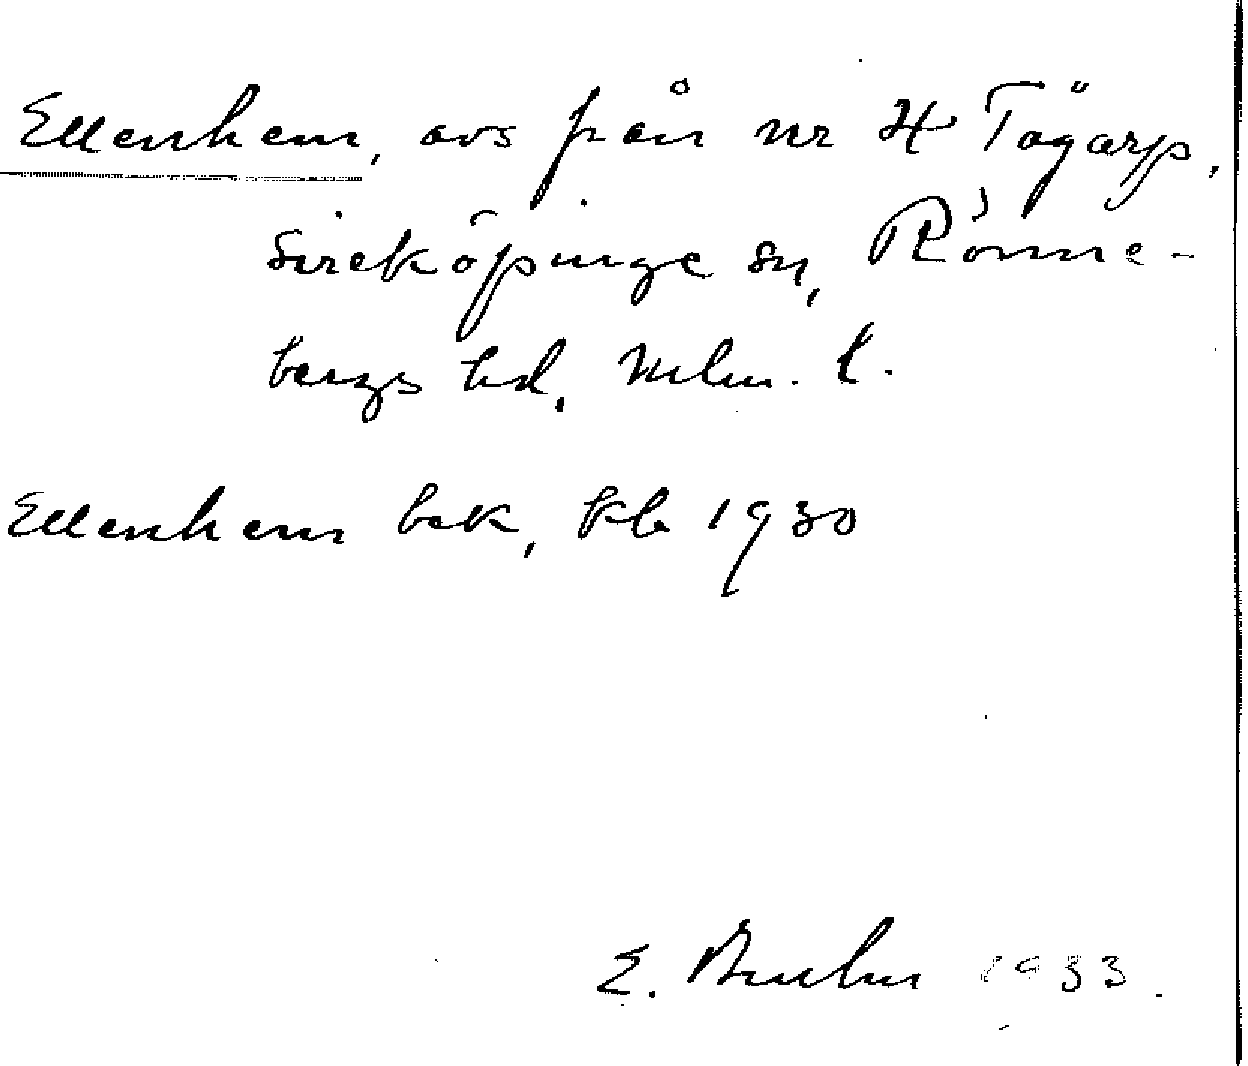 Ellenhem, avs från nr 4 Tågarp,
Sireköpinge sn, Rönne-
bergs hd, Mlm. l.
Ellenhem bsk, kb 1930
E. 1933.